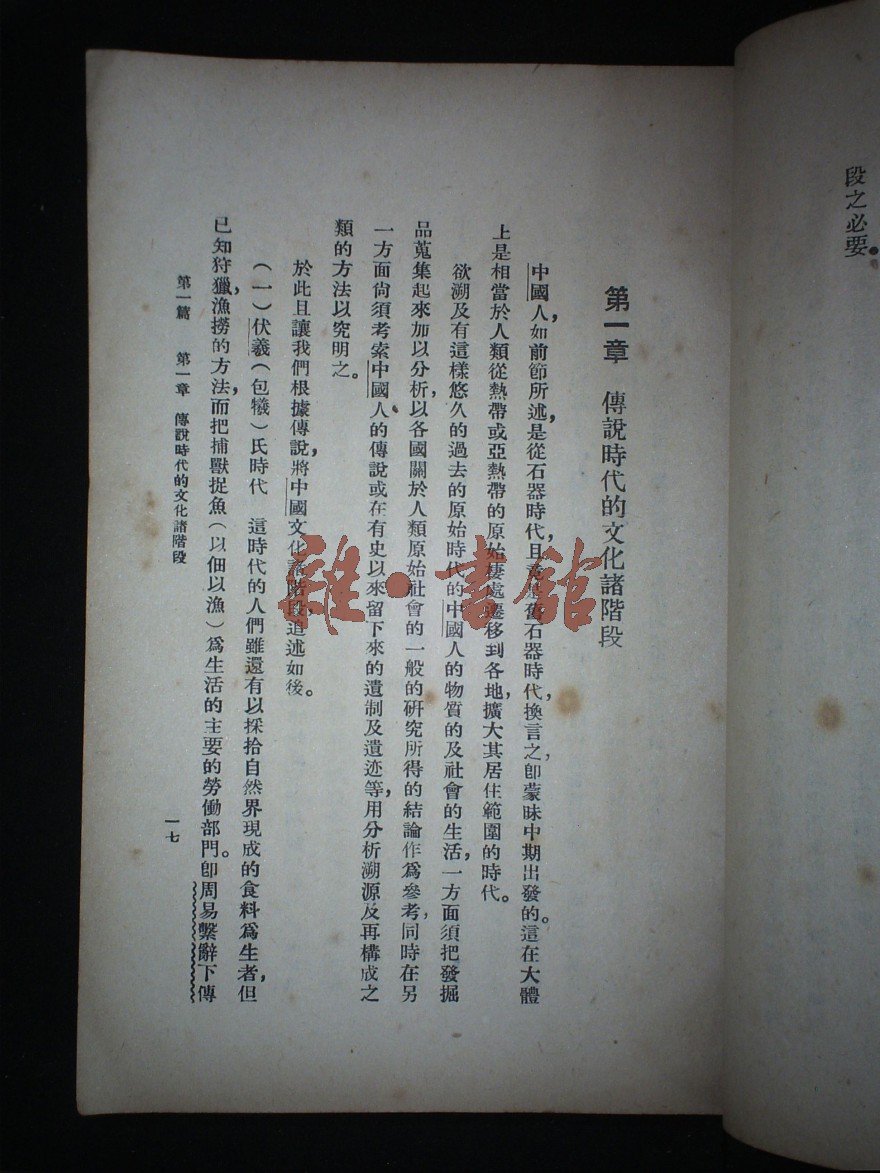 段之必要。
第一章　傳說時代的文化諸階段
中國人，如前節所述，是從石器時代，且竟是舊石器時代，換言之，卽蒙昧中期出發的。這在大體
上是相當於人類從熱帶或亞熱帶的原始棲處遷移到各地，擴大其居住範圍的時代。
欲溯及有這樣悠久的過去的原始時代的中國人的物質的及社會的生活，一方面須把發掘
品蒐集起來加以分析，以各國關於人類原始社會的一般的研究所得的結論作爲參考，同時在另
一方面尙須考索中國人的傳說或在有史以來留下來的遺制及遺迹等，用分析溯源及再構成之
類的方法以究明之。
於此且讓我們根據傳說，將中國文化諸階段，追述如後。
（一）伏羲（包犧）氏時代　這時代的人們雖還有以採拾自然界現成的食料爲生者，但
已知狩獵，漁撈的方法，而把捕獸捉魚（以佃以漁）爲生活的主要的勞働部門。卽周易繫辭下傳
第一篇　第一章　傳說時代的文化諸階段
一七
雜·書館